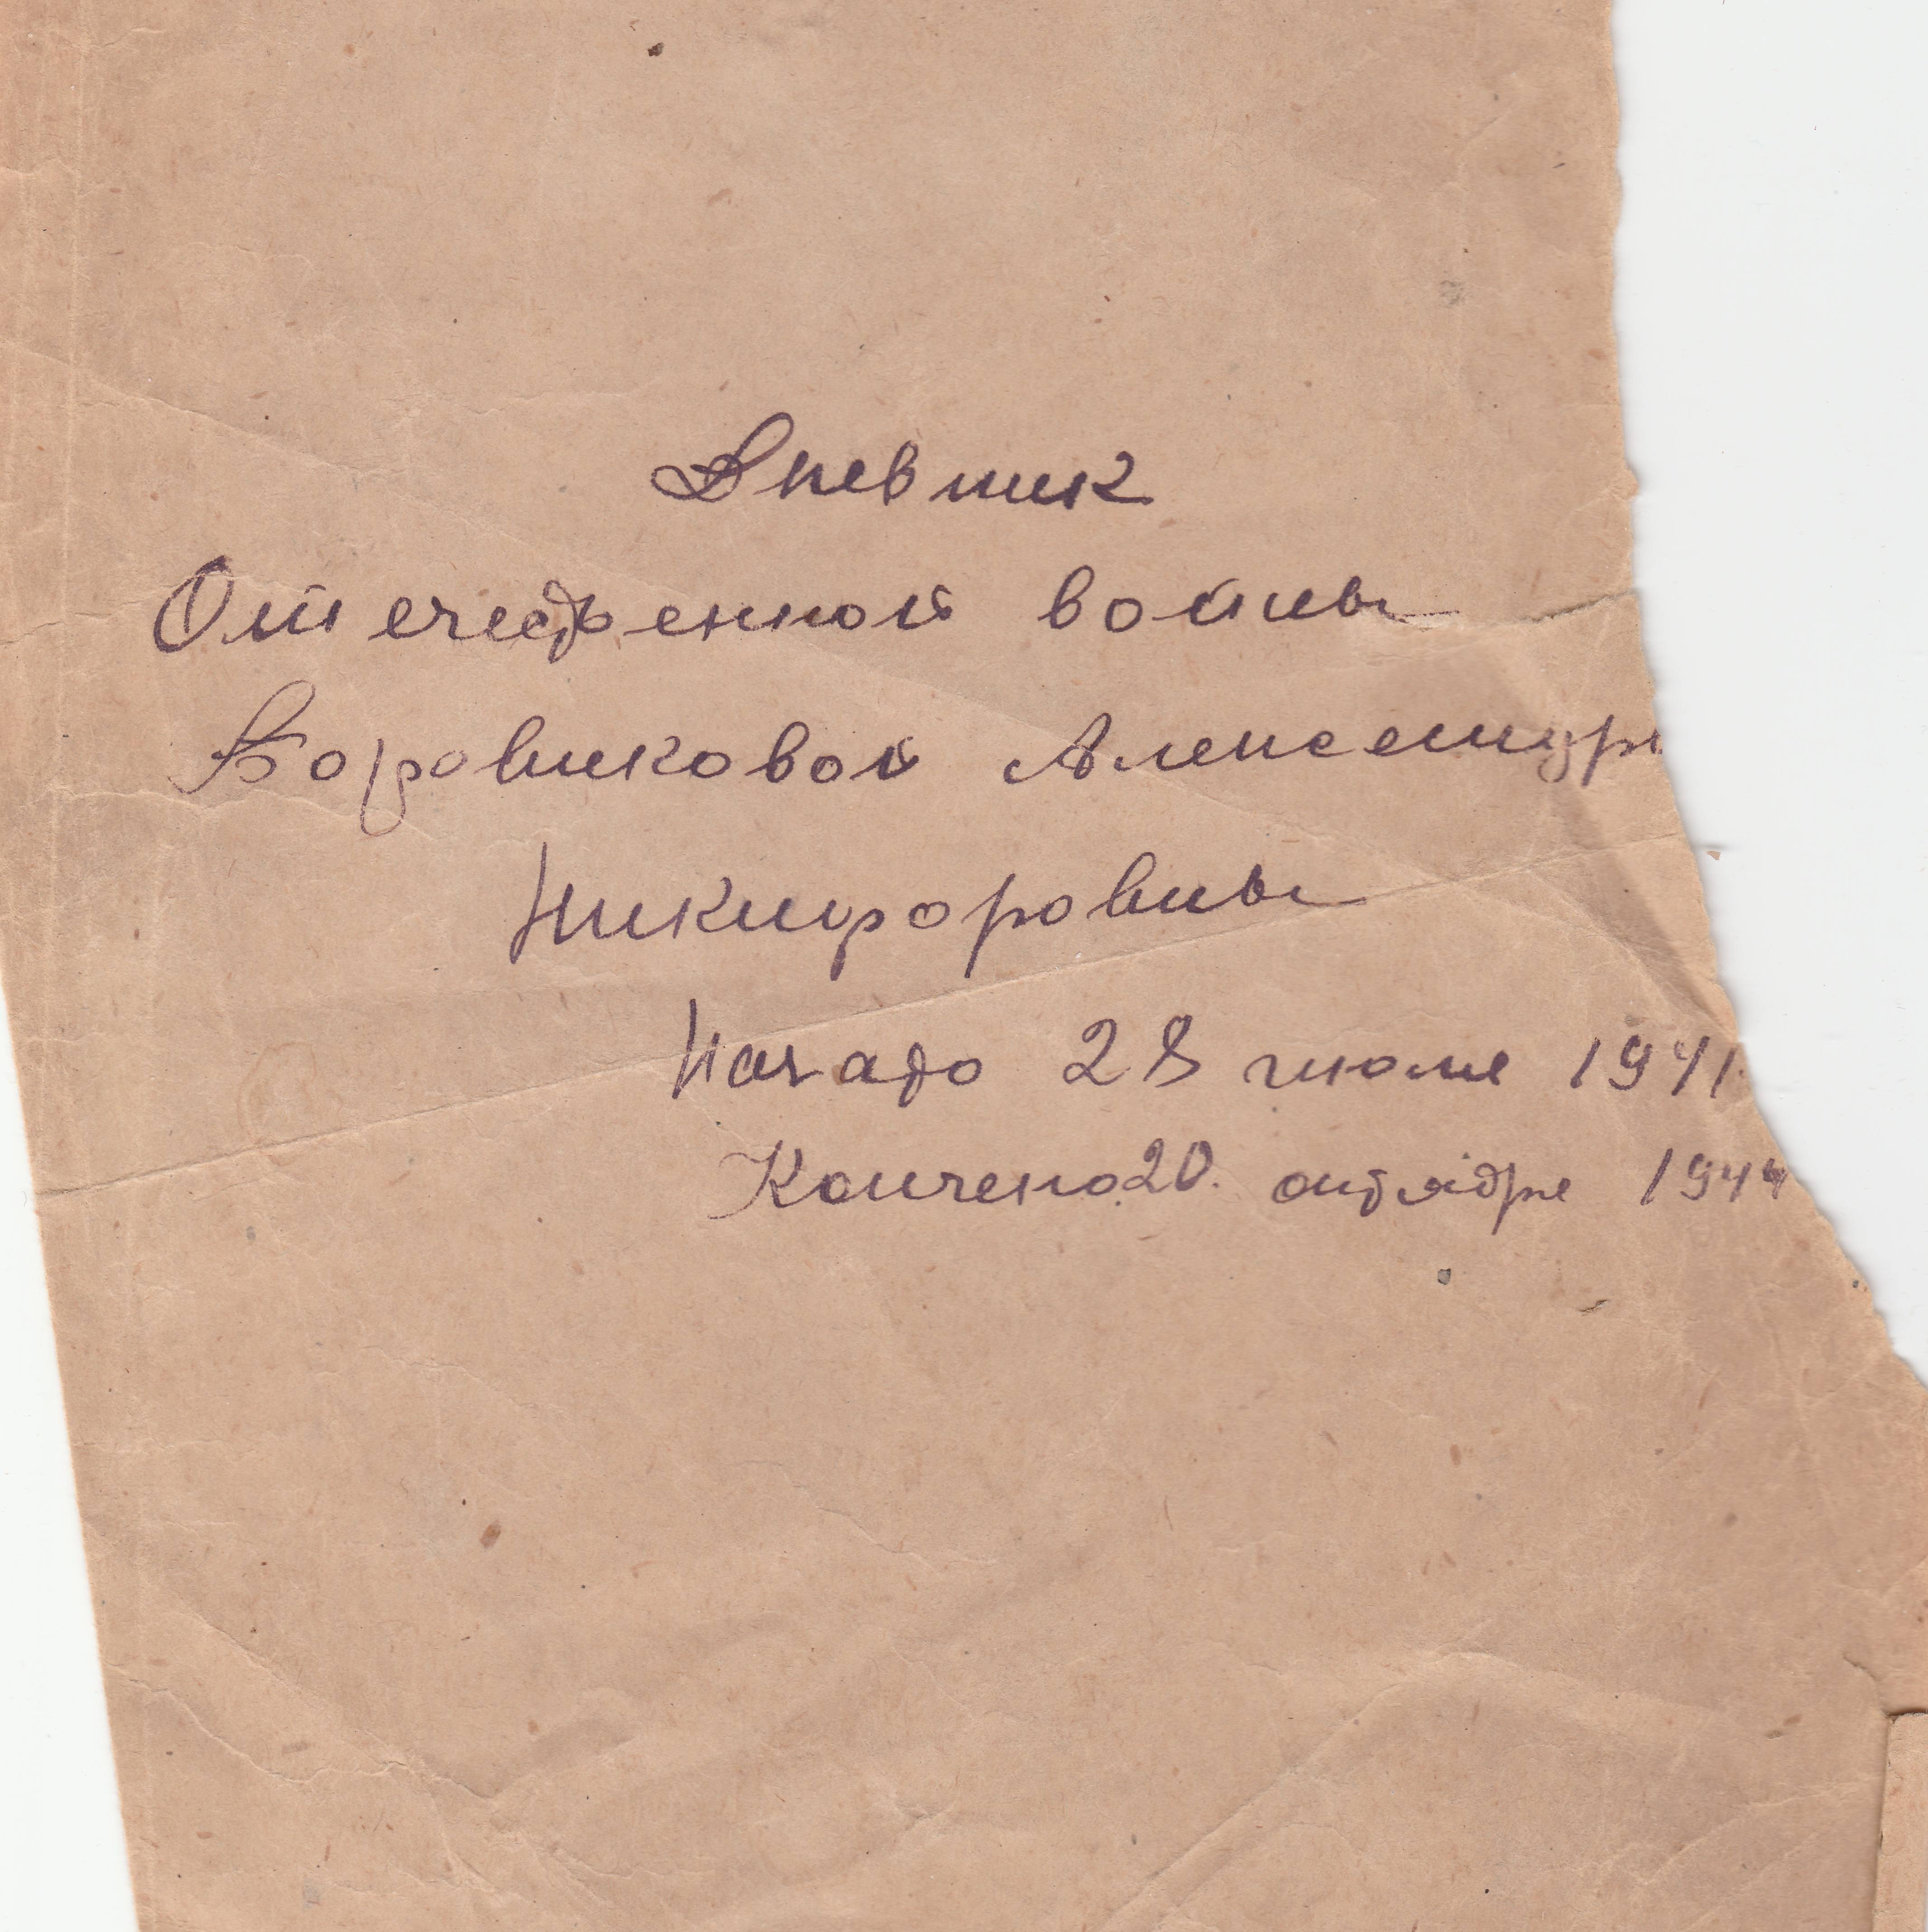 Дневник
Отечественной войны
Боровиковой Александры
Никифоровны
Начало 28 июля 1941
Кончено 20. октября 1944